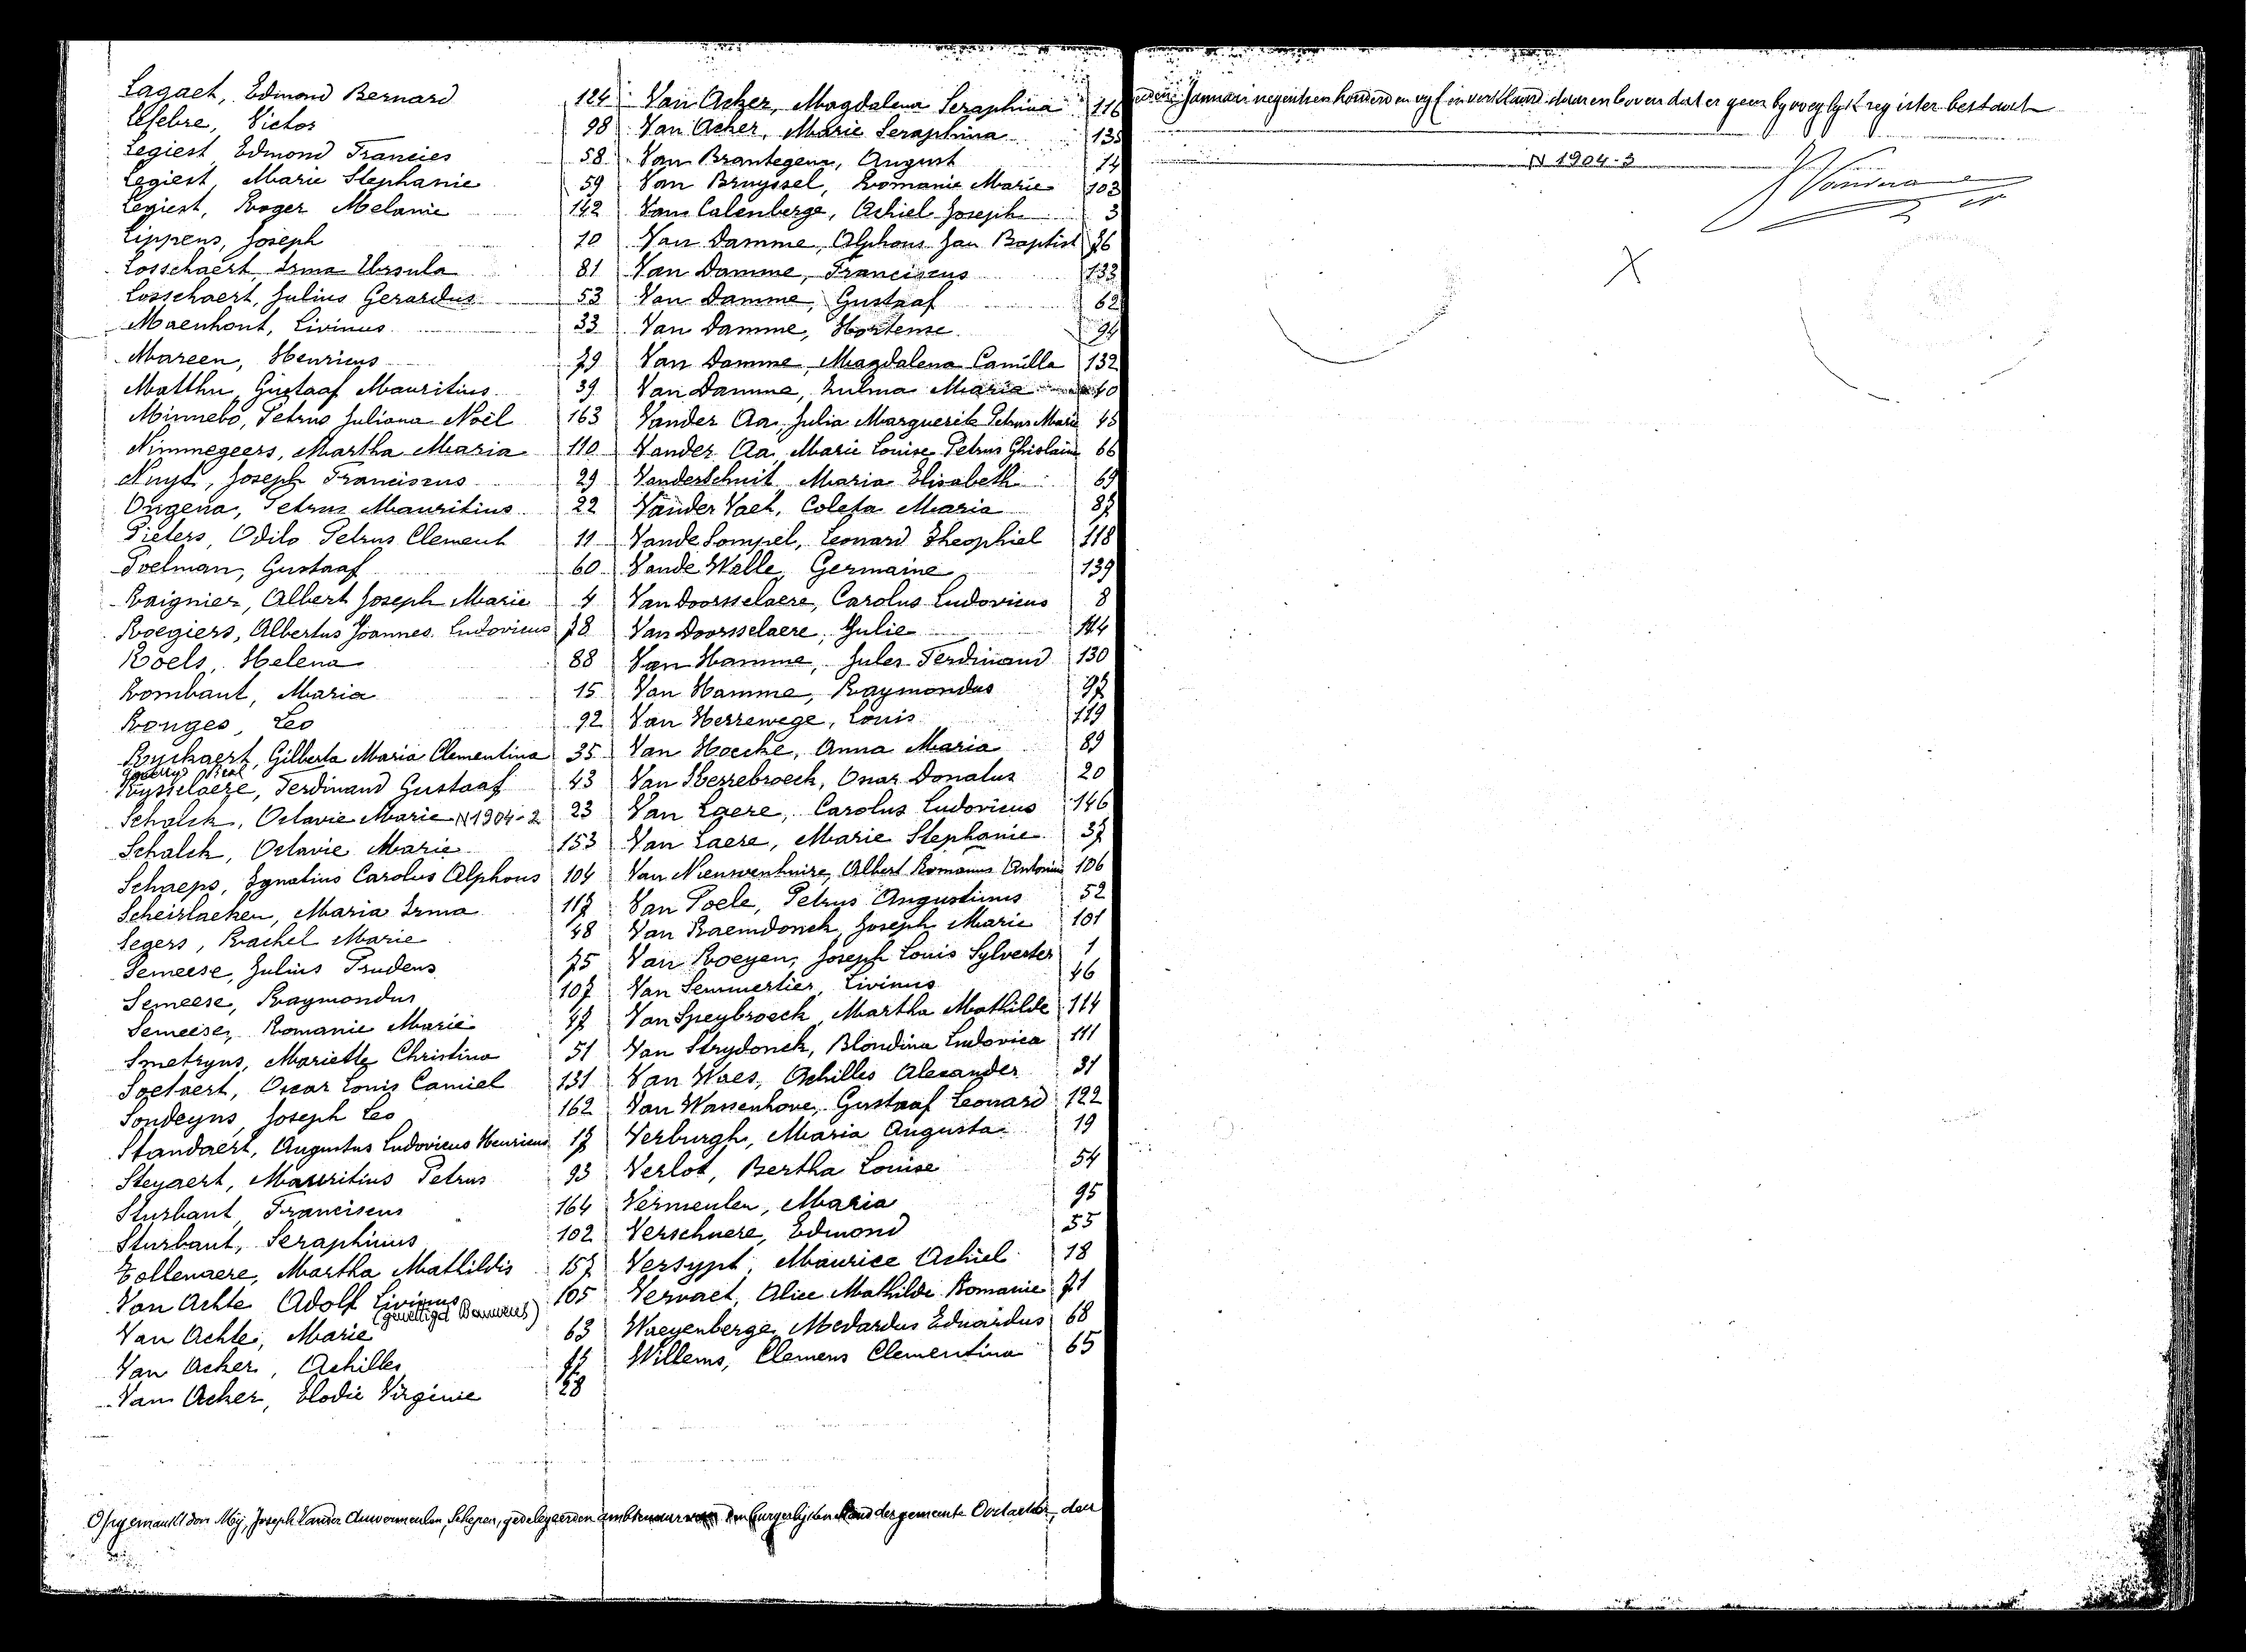 Lagaet, Edmond Bernard 124
Lefebre, Victor 98
Legiest Edmond Francies 58
Legiest, Marie Stephanie 59
Legiest, Roger Melanie 142
Lippens, Joseph 70
Losschaert, Irma Ursula 81
Losschaert, Julius Gerardus 53
Maenhout, Livinus 33
Mareen, Henricus 79
Matthu, Gustaaf Mauritius 39
Minnebo, Petrus Juliana Noël 163
Nimmegeers, Martha Maria 110
Nuyt, Joseph Franciscus 29
Ongena, Petrus Mauritius 22
Pieters, Odilo Petrus Clement 11
Poelman, Gustaaf 60
Raignier, Albert Joseph Marie 4
Roegiers, Albertus Joannes Ludovicus 78
Roels, Helena 88
Rombaut, Maria 15
Ronges, Leo 92
Ryckaert, Gilberta Maria Clementina 35
Rysselaere, Ferdinand Gustaaf 43
Schalck, Octavie Marie N1904-2 23
Schalck, Octavie Marie 153
Schaeps, Ignatius Carolus Alphons 104
Scheirlacken, Maria Irma 117
Segers, Rachel Marie 48
Semeese, Julius Prudens 75
Semeese, Raymondus 107
Semeese, Romanie Marie 47
Smetryns, Mariette Christina 51
Soetaert, Oscar Louis Camiel 131
Sondeyns, Joseph Leo 162
Standaert, Augustus Ludovicus Henricus 17
Steyaert, Mauritius Petrus 93
Sturbaut, Franciscus 164
Sturbaut, Seraphinus 102
Tollenaere, Martha Mathildis 157
Van Achte Adolf Livinus 105
(gewettigd Bauwens)
Van Achte, Marie 63
Van Acker, Achilles
Van Acker, Elodie Virginie 28
Van Acker, Magdalena Seraphina 116
Van Acker, Marie Seraphina 135
Van Brantegem, August 14
Van Bruyssel, Romanie Marie 103
Van Calenberge, Achiel Joseph 3
Van Damme, Alphons Jan Baptist 76
Van Damme, Franciscus 133
Van Damme, Gustaaf 62
Van Damme, Hortense 94
Van Damme, Magdalena Camilla 132
Van Damme, Zulma Maria 40
Vander Aa, Julia Marguerite Petrus Marie 45
Vander Aa, Marie Louise Petrus Ghislain 66
Vanderschuit Maria Elisabeth 69
Vander Vaet, Coleta Maria 87
Vande Sompel, Leonard Theophiel 118
Vande Walle, Germaine 139
Van Doorsselaere, Carolus Ludovicus 8
Van Doorsselaere, Julie 144
Van Hamme, Jules Ferdinand 130
Van Hamme, Raymondus 97
Van Herrewege, Louis 119
Van Hoecke, Anna Maria 89
Van Iserrebroeck, Omar Donatus 20
Van Laere, Carolus Ludovicus 146
Van Laere, Marie Stephanie 37
Van Nieuwenhuize, Albert Romanus Antonius 106
Van Poele, Petrus Augustinus 52
Van Raemdonck, Joseph Marie 101
Van Roeyen, Joseph Louis Sylvester 1
Van Semmertier, Livinus 46
Van Speybroeck, Martha Mathilde 114
Van Strydonck, Blondina Ludovica 111
Van Waes, Achilles Alexander 31
Van Wassenhove, Gustaaf Leonard 122
Verburgh, Maria Augusta 19
Verlot, Bertha Louise 54
Vermeulen, Maria 95
Verschuere, Edmond 55
Versypt, Maurice Achiel 18
Vervaet, Alice Mathilde Romanie 71
Waeyenberge Medardus Eduardus 68
Willems, Clemens Clementina 65
Opgemaakt door Mij, Joseph Vander Auwermeulen, Schepen, gedelegeerden ambtenaar van den burgerlijken stand der gemeente Oostacker, den
Januari negentien honderd en vyf en verklaard daarenboven dat er geen byvoeglyk register bestaat
N 1904-3